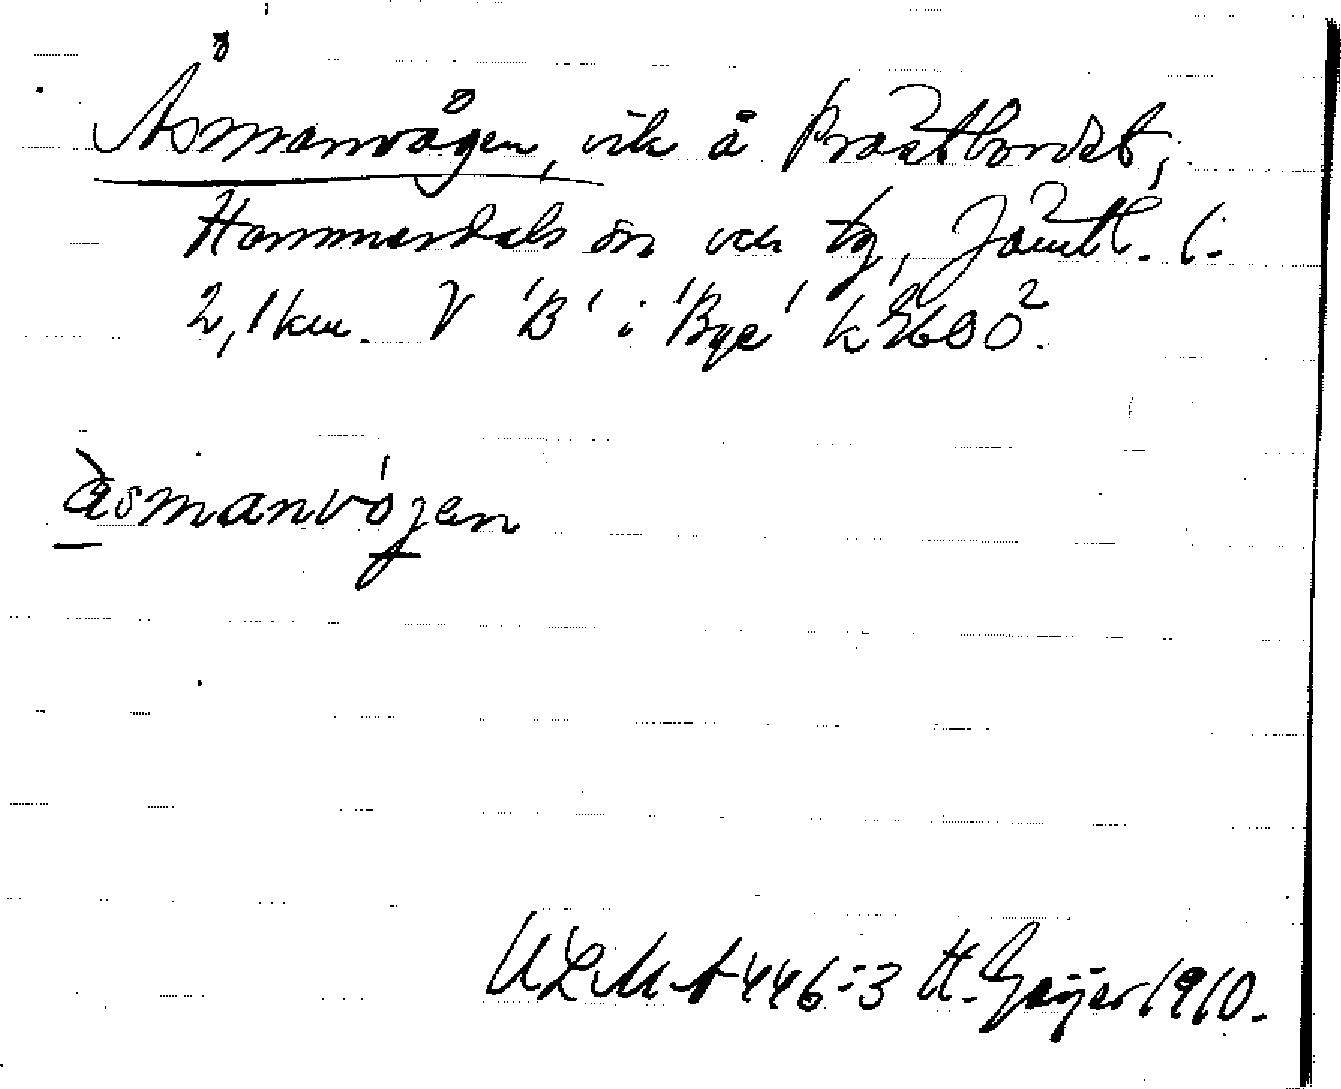 Åsmanvågen, vik å Prästbordet,
Hammerdals sn och tg, Jämtl. l.
2,1 km. V 'B' i 'Bye' k
åsmanvójen
ULMA 446:3 H. Geijer 1910.